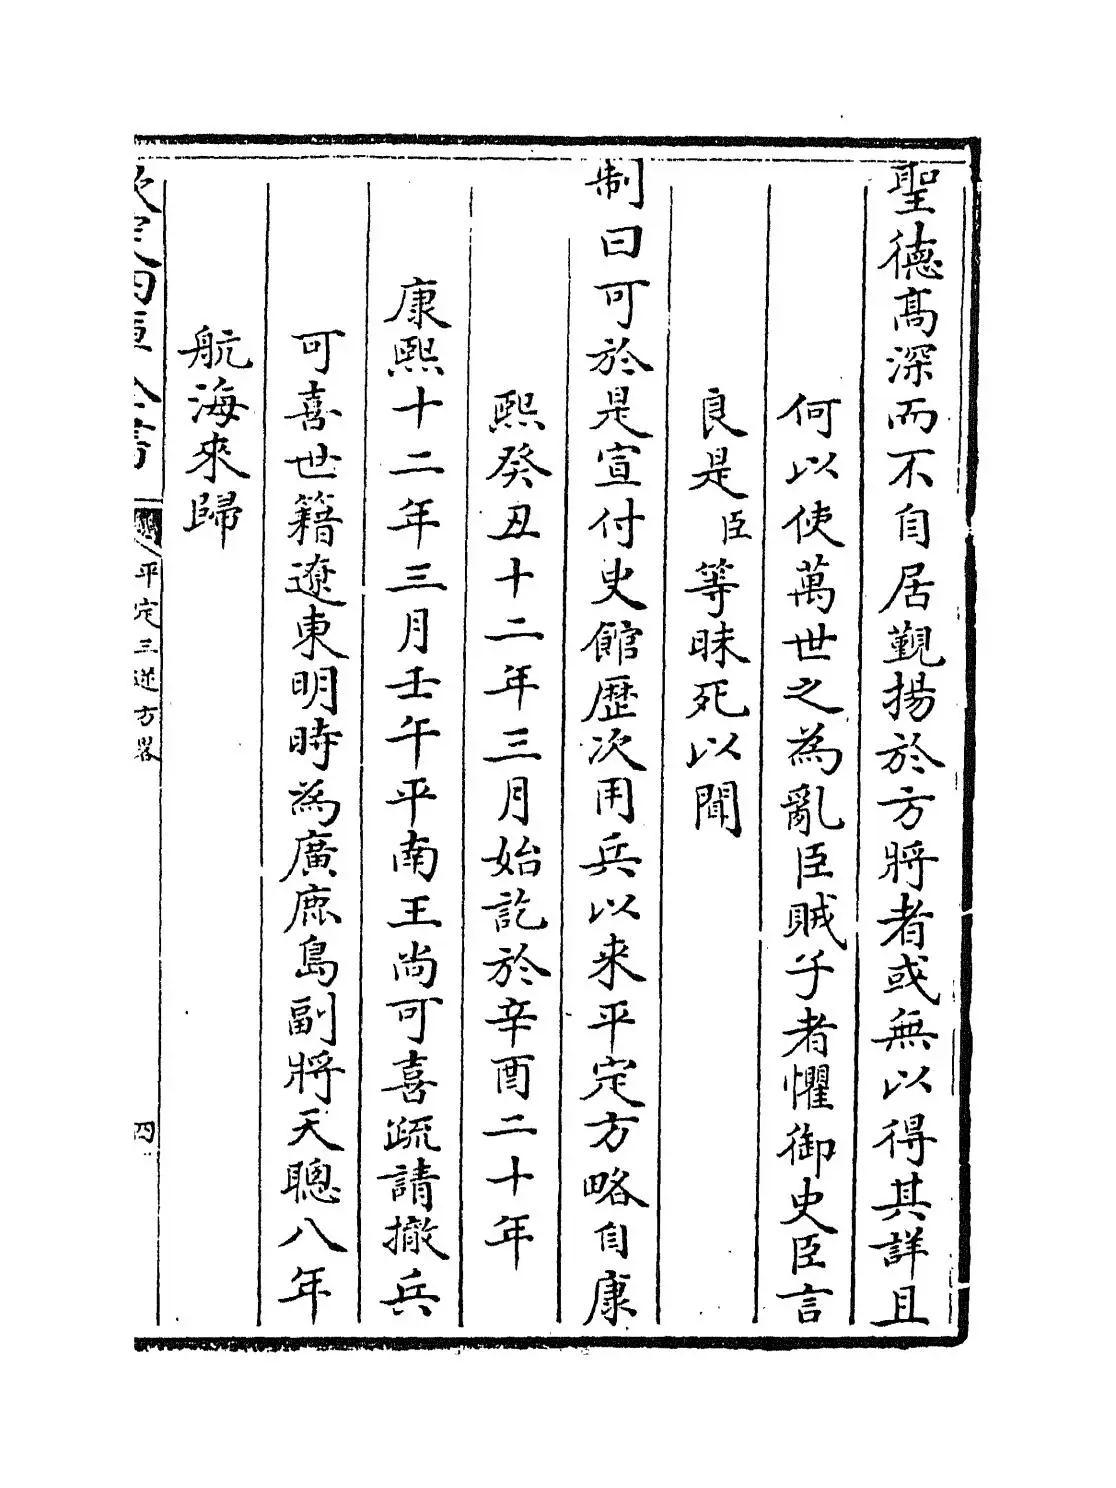 聖德高深而不自居覲揚於方將者或無以得其詳且
何以使萬世之為亂臣賊子者懼御史臣言
良是臣等昧死以聞
制曰可於是宣付史館歷次用兵以来平定方略自康
熙癸丑十二年三月始訖於辛酉二十年
康熙十二年三月壬午平南王尚可喜疏請撤兵
可喜世籍遼東明時為廣鹿島副將天聰八年
航海來歸
欽定四庫全書
平定三逆方畧
四